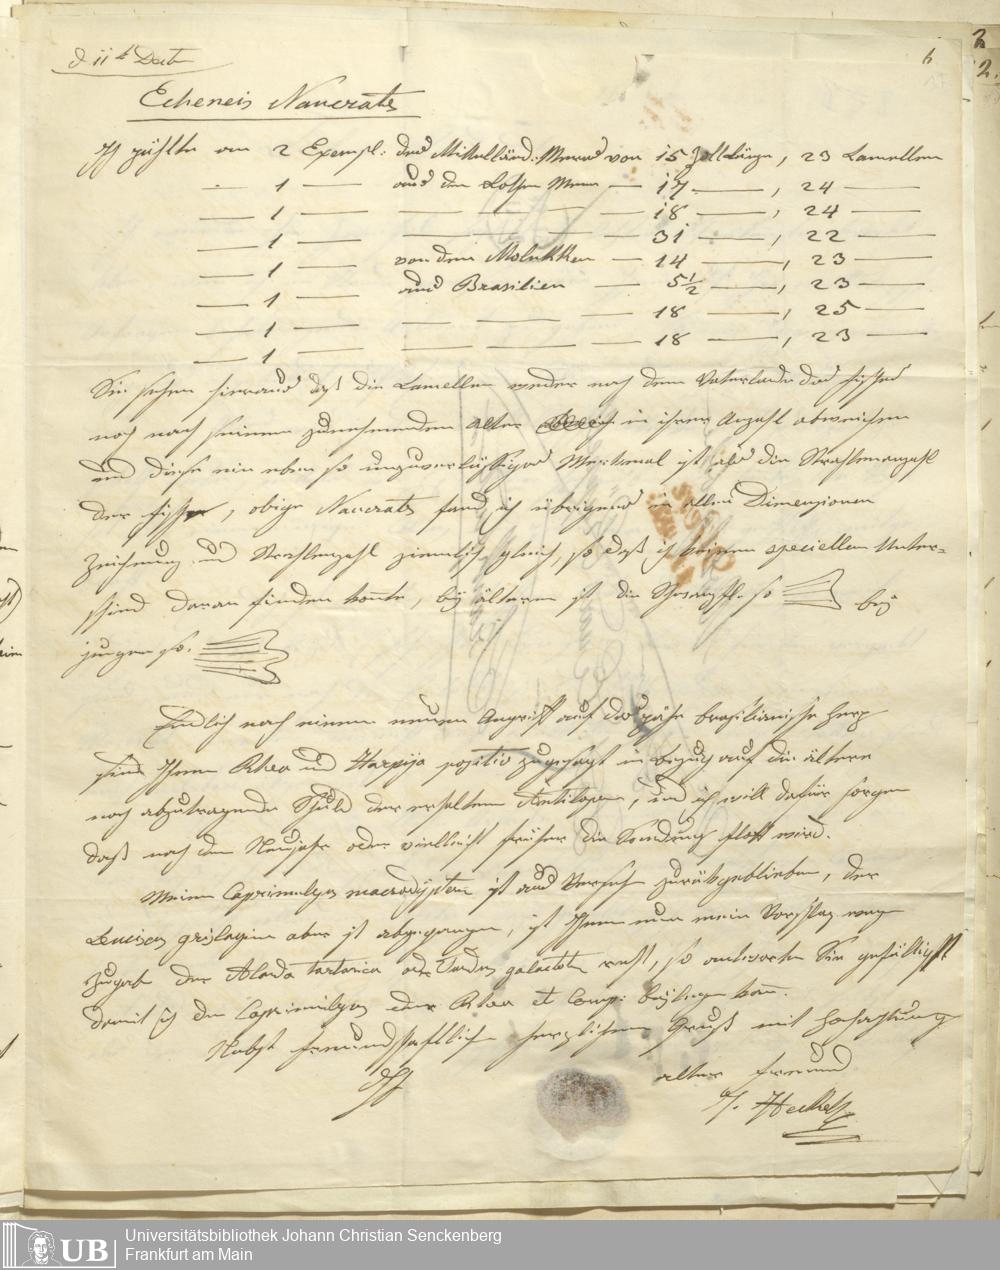 d 11t Dect
6
Echeneis Naucrates
Ich zählte an 2 Exempl: des Mittelländ: Meeres von 15 Zoll Länge, 23 Lamellen
— 1 — aus dem Rothen Meer — 17 —, 24 —
— 1 — — — — 18 —, 24 —
— 1 — — — — 31 —, 22 —
— 1 — von den Molukken — 14 —, 23 —
— 1 — aus Brasilien — 5½ —, 23 —
— 1 — — — — 18 —, 25 —
— 1 — — — — 18 —, 23 —
Sie sehen hieraus daß die Lamellen weder nach dem Vaterlande des Fisches
noch nach seinem zunehmenden Alter in ihrer Anzahl abweichen
und diese ein eben so unzuverläßiges Merkmal ist als die Strahlenanzahl
der Fische, obige Naucrates fand ich übrigens in allen Dimensionen
Zeichnung und Strahlenzahl ziemlich gleich, so daß ich keinen speciellen Unter=
schied daran finden konnte, bey älteren ist die Schwanzfl. so bey
jungen so.
Endlich nach einem neuen Angriff auf das zähe brasilianische Herz
sind Ihnen Rhea und Harpija positiv zugesagt in Bezug auf die ältere
noch abzutragende Schuld der erhaltenen Antilopen, und ich will dafür sorgen
daß nach dem Neujahr oder vielleicht früher die Sendung flott wird.
Meine Caprimulgus macrodipterus ist aus Versehen zurükgeblieben, der
Leuciscus grislagine aber ist abgegangen, ist Ihnen nun mein Vorschlag wegen
Zugabe der Alauda tartarica oder Turdus recht, so antworten Sie gefälligst
damit ich den Caprimulgus oder Rhea et Comp: beylegen kann.
Nebst freundschaftlich herzlichem Gruß mit Hochachtung
Ihr alter Freund
J. Heckel
Universitätsbibliothek Johann Christian Senckenberg
Frankfurt am Main
UB